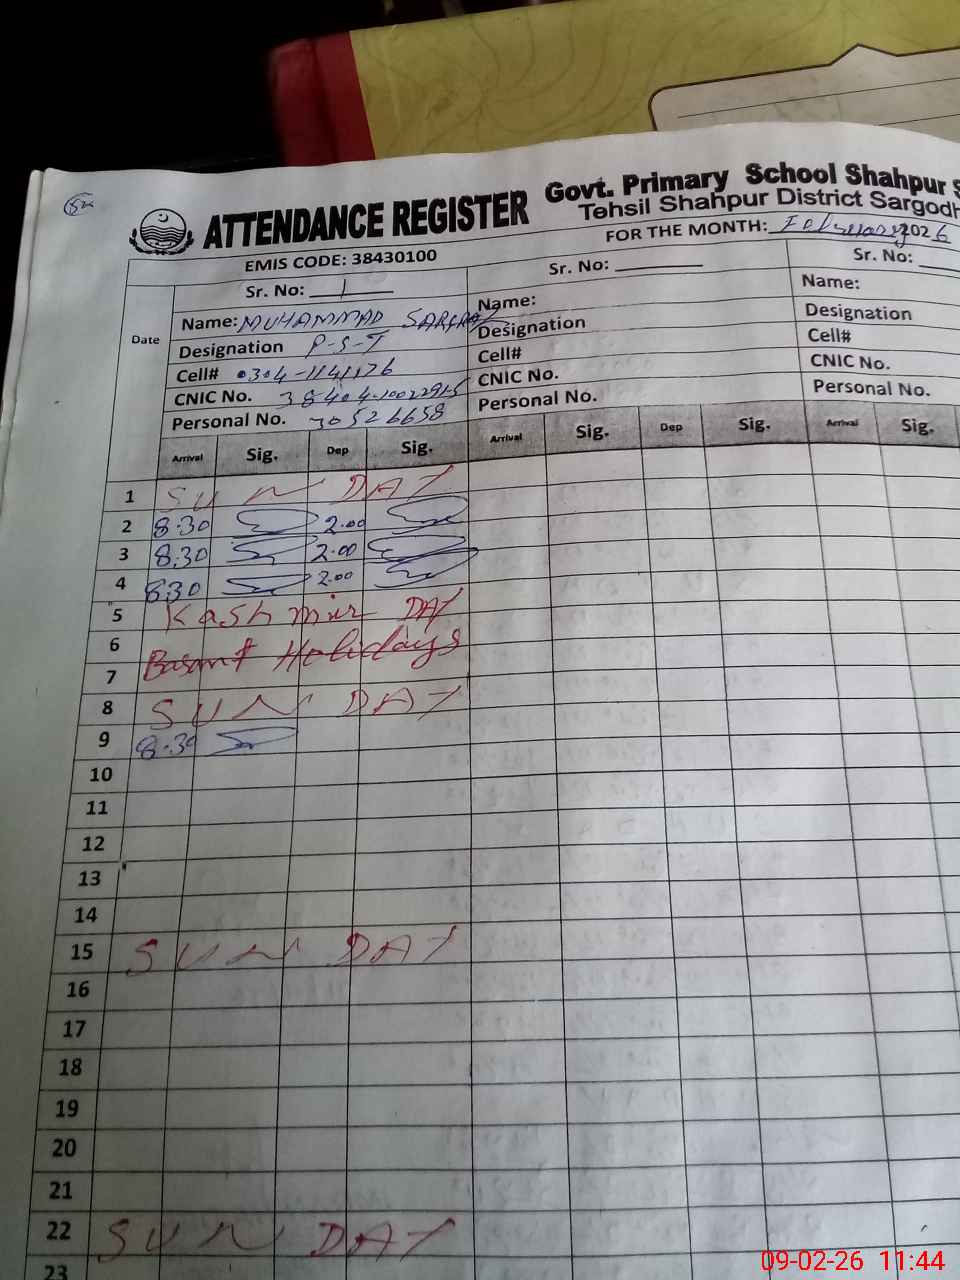 ATTENDANCE REGISTER Govt. Primary School Shahpur S
Tehsil Shahpur District Sargodh
EMIS CODE: 38430100 FOR THE MONTH: February 2026
Date Sr. No: 1 Sr. No: Sr. No:
Name: MUHAMMAD Name: Name:
Designation P-S-T Designation Designation
Cell# 0304-1141176 Cell# Cell#
CNIC No. CNIC No. CNIC No.
Personal No. 30526658 Personal No. Personal No.
Arrival Sig. Dep Sig. Arrival Sig. Dep Sig. Arrival Sig.
1 SUN DAY
2 8:30 2.00
3 8:30 2.00
4 8:30 2.00
5 Kashmir DAY
6 Basant Holidays
7
8 SUN DAY
9 8:30
10
11
12
13
14
15 SUN DAY
16
17
18
19
20
21
22 SUN DAY
23
09-02-26 11:44